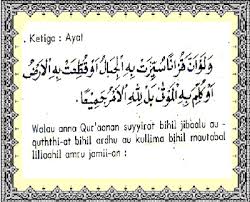 . Ketiga : Ayat
وَلَوْ اَنَّ قُرْاٰنًا سُيِّرَتْ بِهِ الْجِبَالُ اَوْ قُطِّعَتْ بِهِ الْاَرْضُ
اَوْ كُلِّمَ بِهِ الْمَوْتٰى بَلْ لِلّٰهِ الْاَمْرُ جَمِيْعًا.
Walau anna Qur'aanan suyyirot bihil jibaalu au -
quththi-at bihil ardhu au kullima bjhil mautabal
lillaahil amru jamii-an :